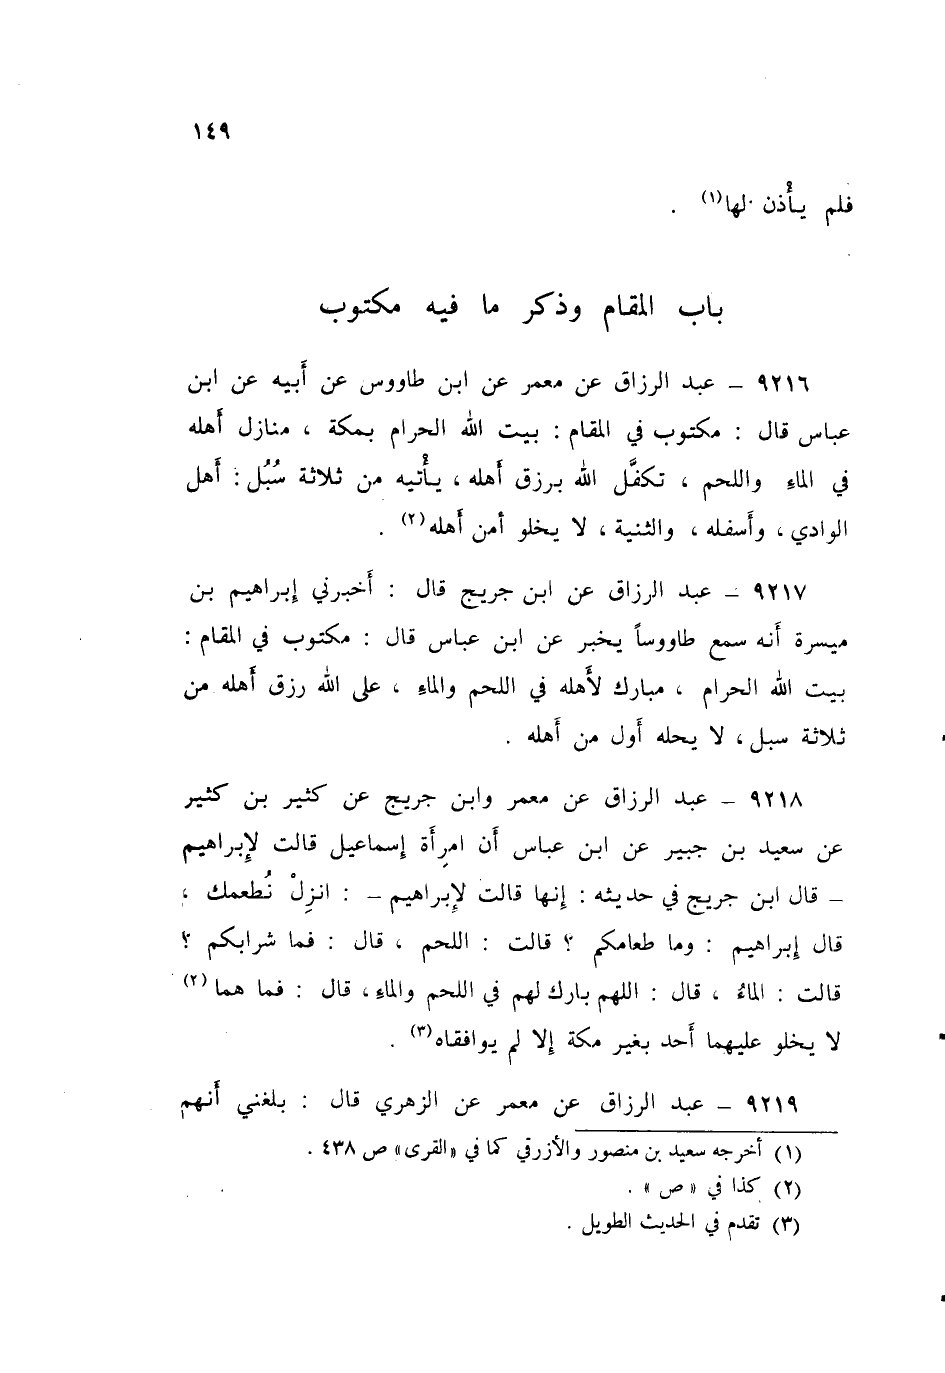 ١٤٩
فلم يأْذن لها(١) .
باب المقام وذكر ما فيه مكتوب
٩٢١٦ – عبد الرزاق عن معمر عن ابن طاووس عن أَبيه عن ابن
عباس قال : مكتوب في المقام : بيت الله الحرام بمكة ، منازل أَهله
في الماءِ واللحم ، تكفَّل الله برزق أَهله ، يأْتيه من ثلاثة سُبُل : أَهل
الوادي ، وأَسفله ، والثنية ، لا يخلو أمن أَهله(٢) .
٩٢١٧ – عبد الرزاق عن ابن جريج قال : أَخبرني إبراهيم بن
ميسرة أَنه سمع طاووساً يخبر عن ابن عباس قال : مكتوب في المقام :
بيت الله الحرام ، مبارك لأَهله في اللحم والماءِ ، على الله رزق أَهله من
ثلاثة سبل ، لا يحله أَول من أَهله .
٩٢١٨ – عبد الرزاق عن معمر وابن جريج عن كثير بن كثير
عن سعيد بن جبير عن ابن عباس أَن امرأَة إسماعيل قالت لإبراهيم
– قال ابن جريج في حديثه : إنها قالت لإبراهيم – : انزِلْ نُطعمك ،
قال إبراهيم : وما طعامكم ؟ قالت : اللحم ، قال : فما شرابكم ؟
قالت : الماءُ ، قال : اللهم بارك لهم في اللحم والماءِ ، قال : فما هما(٢)
لا يخلو عليهما أَحد بغير مكة إلا لم يوافقاه(٣) .
٩٢١٩ – عبد الرزاق عن معمر عن الزهري قال : بلغني أَنهم
(١) أخرجه سعيد بن منصور والأزرقي كما في «القرى» ص ٤٣٨ .
(٢) كذا في « ص » .
(٣) تقدم في الحديث الطويل .